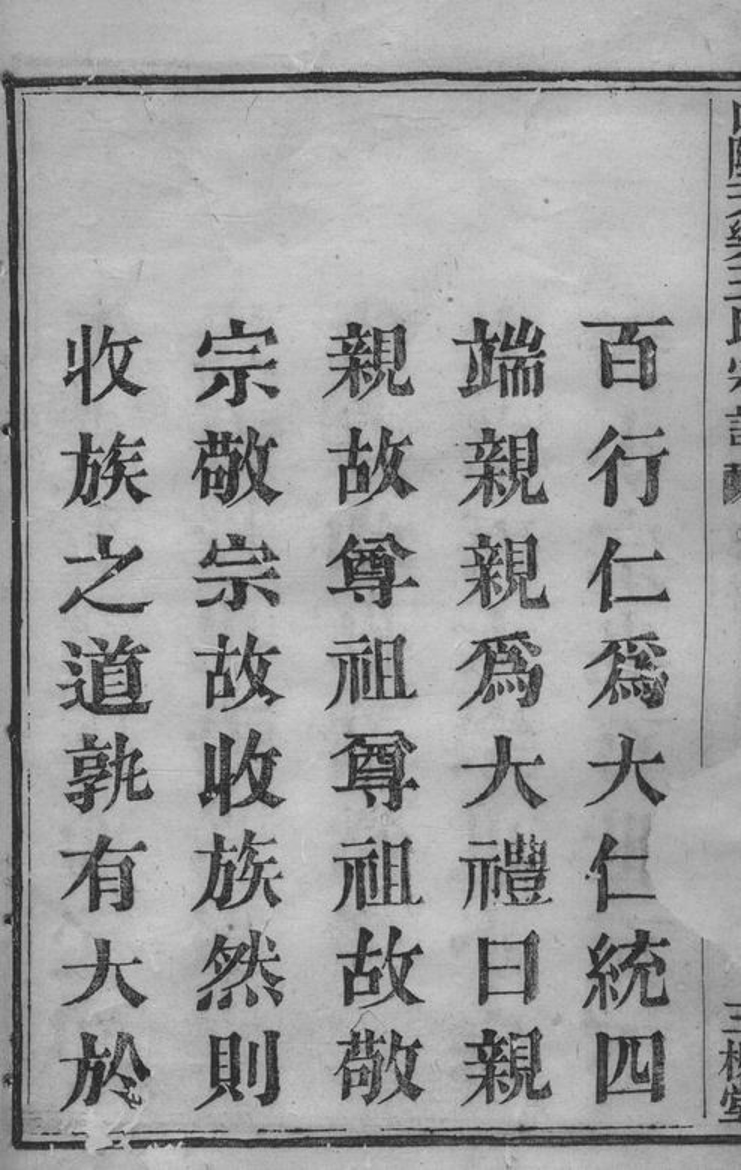 王氏宗譜
三槐堂
百行仁爲大仁統四
端親親爲大禮曰親
親故尊祖尊祖故敬
宗敬宗故收族然則
收族之道孰有大於